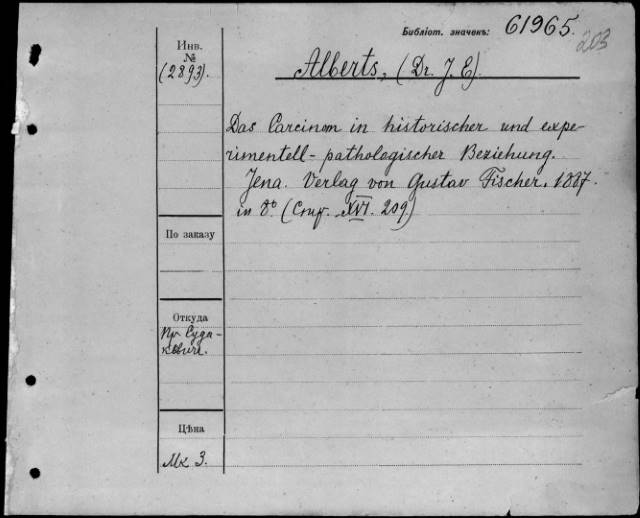 Библіот. значекъ: 61965.
203
Инв.
№
(2893).
Alberts, (Dr. J. E).
Das Carcinom in historischer und expe-
rimentell-pathologischer Beziehung.
Jena. Verlag von Gustav Fischer. 1887.
in 8° (Conf. XVI. 209)
По заказу
Откуда
Пр Суда-
кевича.
Цѣна
Мк 3.